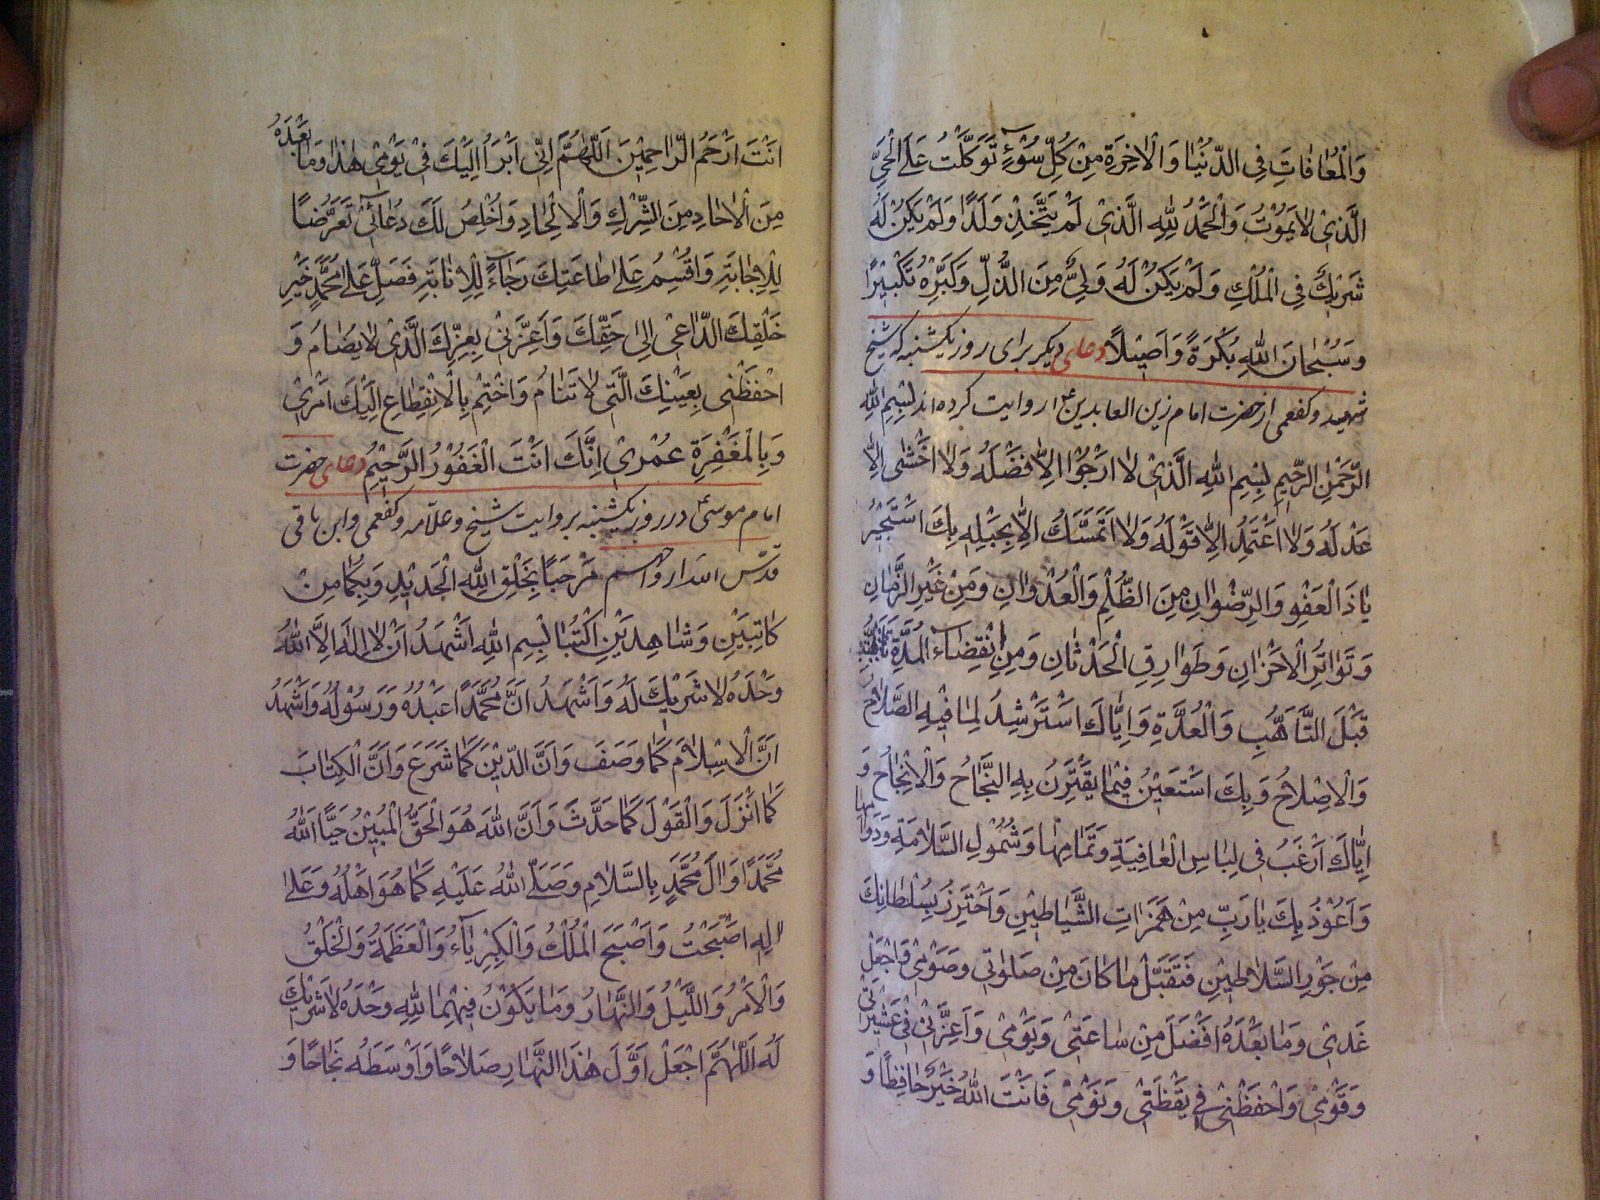 وَالْمُعافاتِ فِی الدُّنْیا وَالْاخِرَةِ مِنْ کُلِّ سُوْءٍ تَوَکَّلْتُ عَلَی الْحَیِّ
الَّذِیْ لایَمُوْتُ وَالْحَمْدُ لِلّهِ الَّذِیْ لَمْ یَتَّخِذْ وَلَدًا وَلَمْ یَکُنْ لَهُ
شَرِیْكٌ فِی الْمُلْكِ وَلَمْ یَکُنْ لَهُ وَلِیٌّ مِنَ الذُّلِّ وَکَبِّرْهُ تَکْبِیْرًا
وَسُبْحانَ اللهِ بُکْرَةً وَاَصِیْلًا دعای دیکر برای روز یکشنبه که شیخ
شهید و کفعمی از حضرت امام زین العابدینؑ روایت کرده اند بِسْمِ اللهِ
الرَّحْمنِ الرَّحِیْمِ بِسْمِ اللهِ الَّذِیْ لا اَرْجُوْا اِلاَّ فَضْلَهُ وَلا اَخْشی اِلاَّ
عَدْلَهُ وَلا اَعْتَمِدُ اِلاَّ قَوْلَهُ وَلا اَتَمَسَّكُ اِلاَّ بِحَبْلِهِ بِكَ اَسْتَجِیْرُ
یا ذَا الْعَفْوِ وَالرِّضْوانِ مِنَ الظُّلْمِ وَالْعُدْوانِ وَمِنْ غِیَرِ الزَّمانِ
وَتَواتُرِ الْاَحْزانِ وَطَوارِقِ الْحَدَثانِ وَمِنِ انْقِضاءِ الْمُدَّةِ
قَبْلَ التَّاَهُّبِ وَالْعُدَّةِ وَاِیَّاكَ اَسْتَرْشِدُ لِما فِیْهِ الصَّلاحُ
وَالْاِصْلاحُ وَبِكَ اَسْتَعِیْنُ فِیْما یَقْتَرِنُ بِهِ النَّجاحُ وَالْاِنْجاحُ وَ
اِیَّاكَ اَرْغَبُ فِی لِباسِ الْعافِیَةِ وَتَمامِها وَشُمُوْلِ السَّلامَةِ وَدَوامِها
وَاَعُوْذُ بِكَ یا رَبِّ مِنْ هَمَزاتِ الشَّیاطِیْنِ وَاَحْتَرِزُ بِسُلْطانِكَ
مِنْ جَوْرِ السَّلاطِیْنِ فَتَقَبَّلْ ما کانَ مِنْ صَلوتِی وَصَوْمِیْ وَاجْعَلْ
غَدِیْ وَما بَعْدَهُ اَفْضَلَ مِنْ ساعَتِیْ وَیَوْمِیْ وَاَعِزَّنِیْ فِیْ عَشِیْرَتِیْ
وَقَوْمِیْ وَاحْفَظْنِیْ فِی یَقْظَتِیْ وَنَوْمِیْ فَاَنْتَ اللهُ خَیْرٌ حافِظًا وَ
اَنْتَ اَرْحَمُ الرَّاحِمِیْنَ اَللّهُمَّ اِنِّی اَبْرَاُ اِلَیْكَ فِیْ یَوْمِیْ هذا وَما بَعْدَهُ
مِنَ الْاحادِ مِنَ الشِّرْكِ وَالْاِلْحادِ وَاُخْلِصُ لَكَ دُعائِیْ تَعَرُّضًا
لِلْاِجابَةِ وَاُقْسِمُ عَلی اطاعَتِكَ رَجاءً لِلْاِثابَةِ فَصَلِّ عَلی مُحَمَّدٍ خَیْرِ
خَلْقِكَ الدَّاعِیْ اِلی حَقِّكَ وَاَعِزَّنِیْ بِعِزِّكَ الَّذِیْ لایُضامُ وَ
احْفَظْنِی بِعَیْنِكَ الَّتِی لاتَنامُ وَاخْتِمْ بِالْاِنْقِطاعِ اِلَیْكَ اَمْرِیْ
وَبِالْمَغْفِرَةِ عُمْرِیْ اِنَّكَ اَنْتَ الْغَفُوْرُ الرَّحِیْمُ دعای حضرت
امام موسیؑ در روز یکشنبه بروایت شیخ و علامه و کفعمی و ابن باقی
قدّس الله ارواحهم مَرْحَبًا بِخَلْقِ اللهِ الْجَدِیْدِ وَبِکُما مِنْ
کاتِبَیْنِ وَشاهِدَیْنِ اکْتُبا بِسْمِ اللهِ اَشْهَدُ اَنْ لا اِلهَ اِلاَّ اللهُ
وَحْدَهُ لاشَرِیْكَ لَهُ وَاَشْهَدُ اَنَّ مُحَمَّدًا عَبْدُهُ وَرَسُوْلُهُ وَاَشْهَدُ
اَنَّ الْاِسْلامَ کَما وَصَفَ وَاَنَّ الدِّیْنَ کَما شَرَعَ وَاَنَّ الْکِتابَ
کَما اَنْزَلَ وَالْقَوْلَ کَما حَدَّثَ وَاَنَّ اللهَ هُوَ الْحَقُّ الْمُبِیْنُ حَیَّا اللهُ
مُحَمَّدًا وَالَ مُحَمَّدٍ بِالسَّلامِ وَصَلَّی اللهُ عَلَیْهِ کَما هُوَ اَهْلُهُ وَعَلی
الِهِ اَصْبَحْتُ وَاَصْبَحَ الْمُلْكُ وَالْکِبْرِیاءُ وَالْعَظَمَةُ وَالْخَلْقُ
وَالْاَمْرُ وَاللَّیْلُ وَالنَّهارُ وَما یَکُوْنُ فِیْهِما لِلّهِ وَحْدَهُ لاشَرِیْكَ
لَهُ اَللّهُمَّ اجْعَلْ اَوَّلَ هذَا النَّهارِ صَلاحًا وَاَوْسَطَهُ نَجاحًا وَ